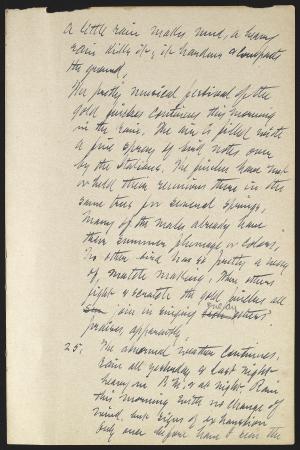 A little rain makes mud, a heavy
rain kills it; it hardens & compacts
the ground.
The pretty musical festival of the
gold finches continues this morning
in the rain. The air is filled with
a fine spray of bird notes over
by the Station. The finches have met
or held their reunions there in the
same trees for several springs.
Many of the males already have
their summer plumage, or colors.
No other bird has so pretty a way
of match making. When others
fight & scratch the gold finches all
join in singing each others
praises, apparently.
25. The abnormal weather continues.
Rain all yesterday & last night
heavy in P.M. & at night. Rain
this morning with no change of
wind. but signs of exhaustion
Only once before have I seen the